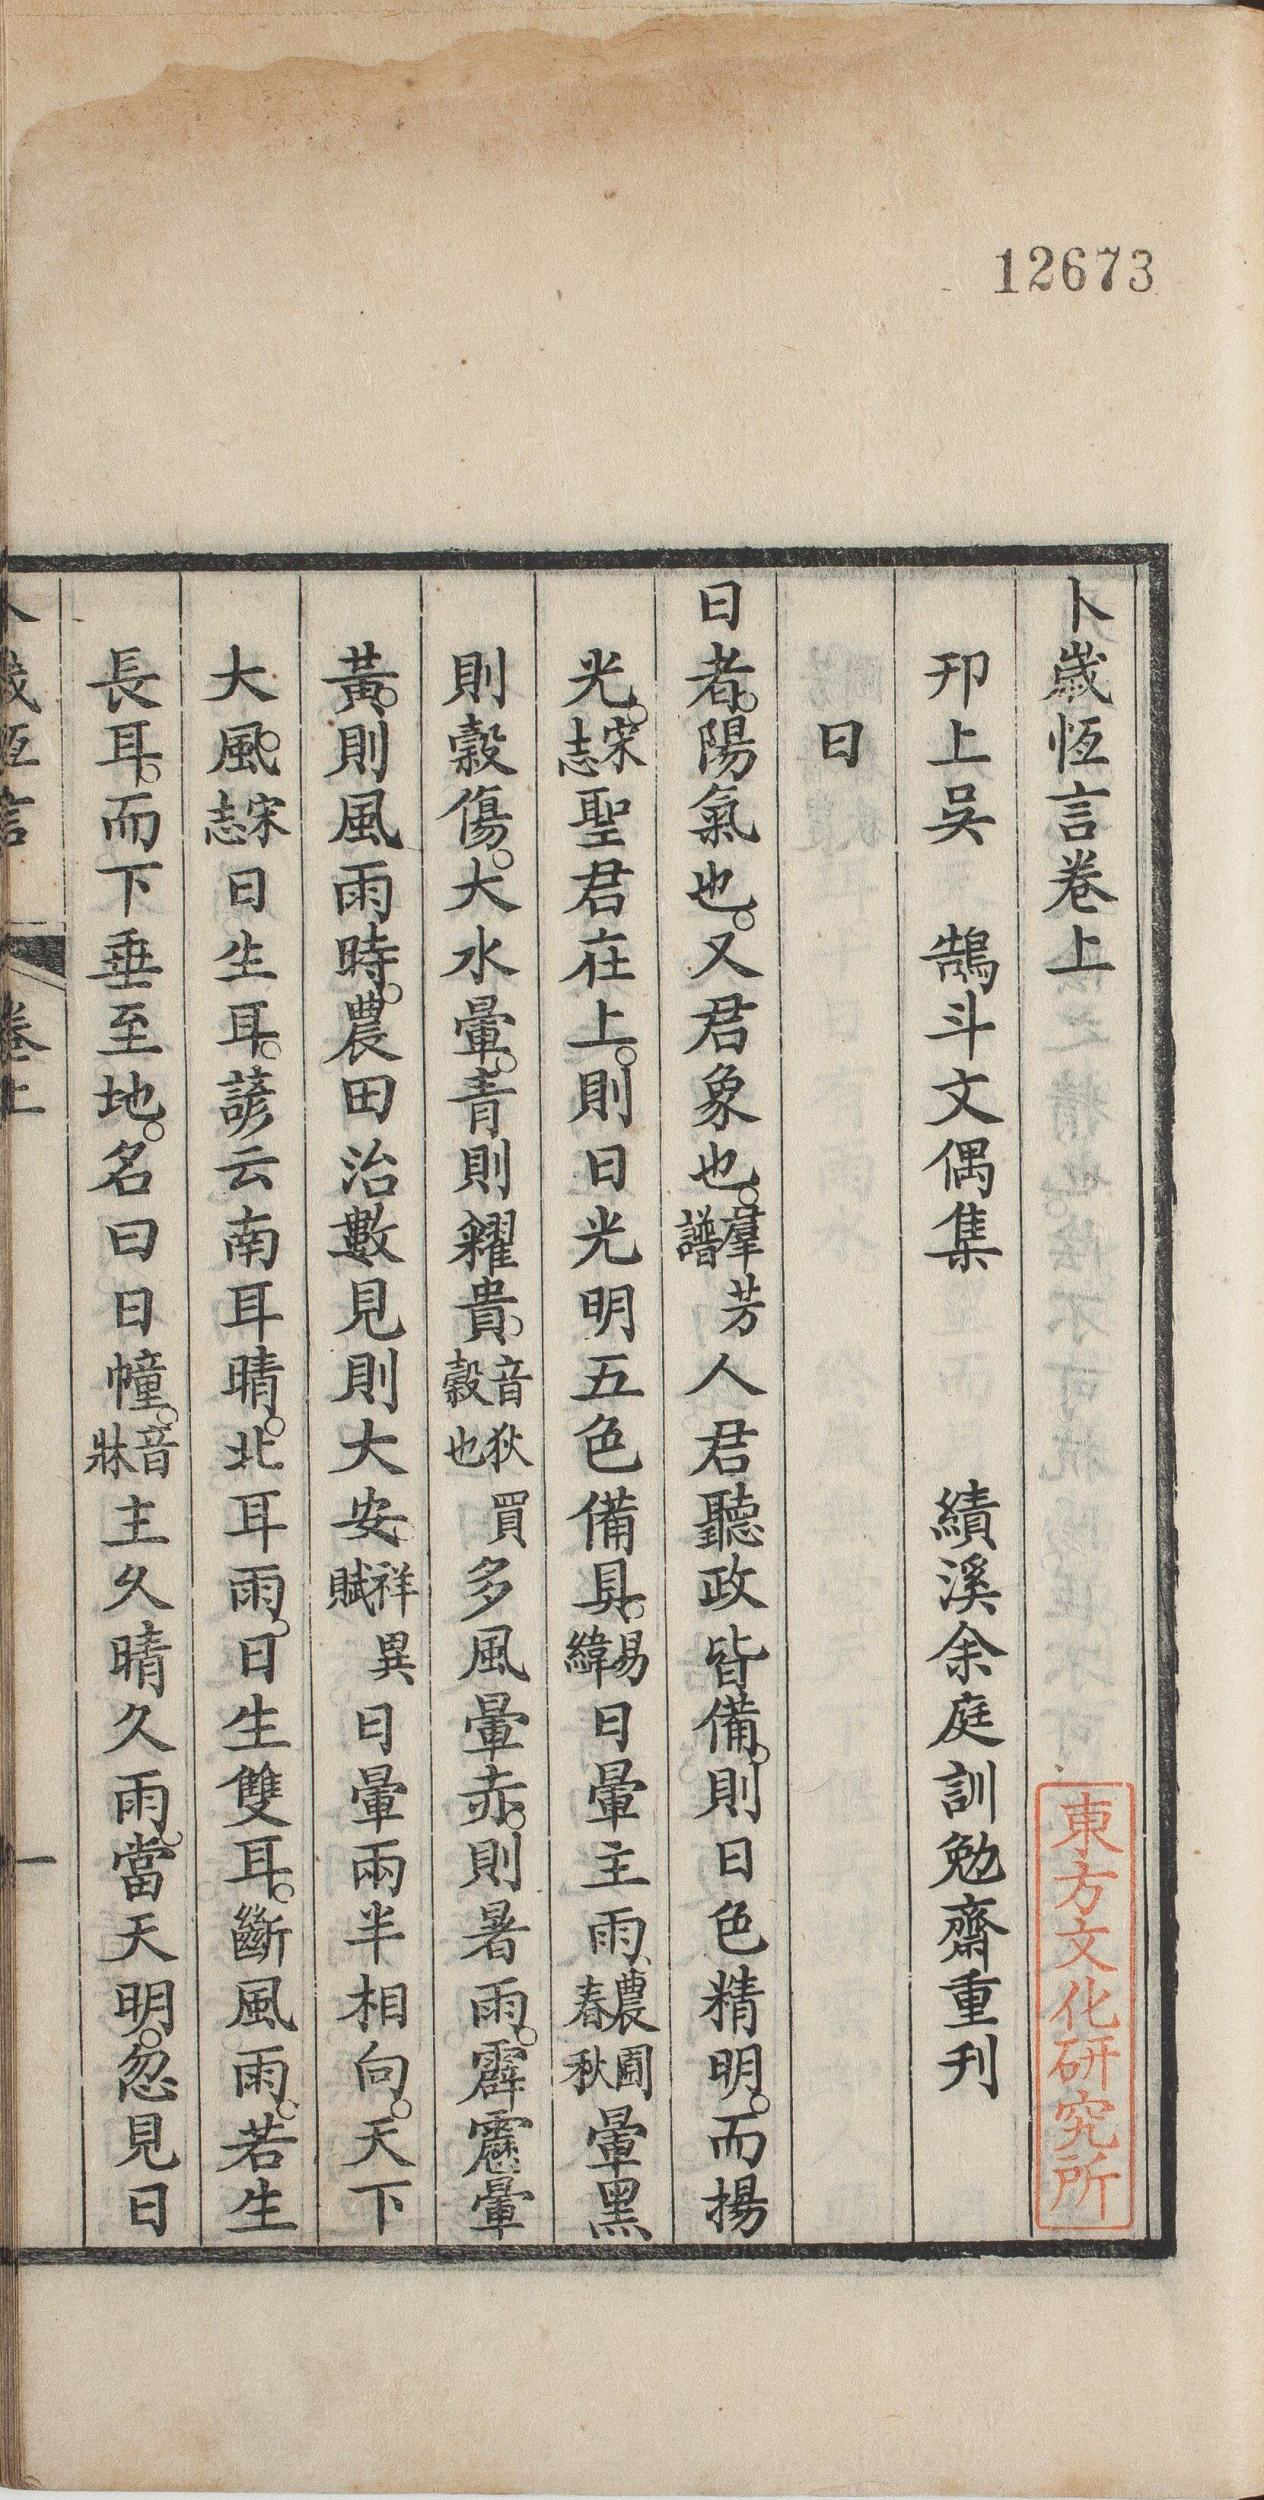 12673
卜歲恆言卷上
東方文化研究所
邗上吳　鵠斗文偶集　績溪余庭訓勉齋重刊
日
日者。陽氣也。又君象也。羣芳譜人君聽政皆備。則日色精明。而揚
光。宋志聖君在上。則日光明五色備具。易緯日暈主雨、農圃春秋暈黑
則穀傷。大水暈。青則糴貴。音狄買穀也多風暈赤。則暑雨。霹靂暈
黃。則風雨時。農田治數見則大安。祥異賦日暈兩半相向。天下
大風。宋志日生耳。諺云南耳晴。北耳雨。日生雙耳。斷風雨。若生
長耳。而下垂至地。名曰日幢。音牀主久晴久雨。當天明。忽見日
卜歲恆言　卷上　一